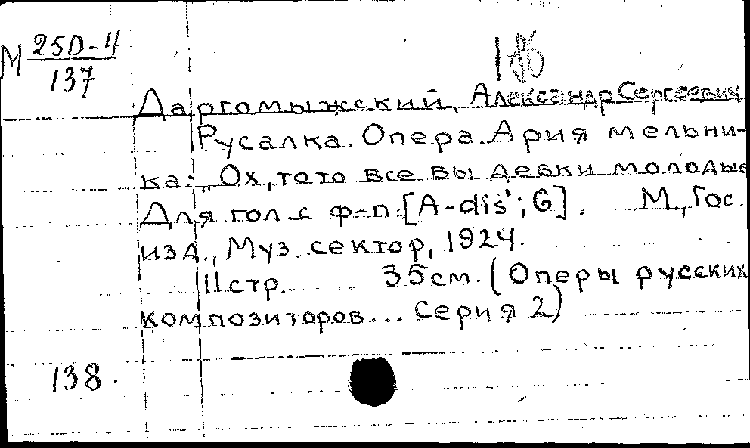 М 25D-4
137
Даргомыжский, Александр Сергеевич
Русалка. Опера. Ария мельни-
ка: „Ох, то-то все вы девки молодые
Для гол. с ф-п. [A-dis¹; G]. М., Гос.
изд., Муз. сектор, 1924.
11 стр. 35 см. (Оперы русских
композиторов... Серия 2)
138.